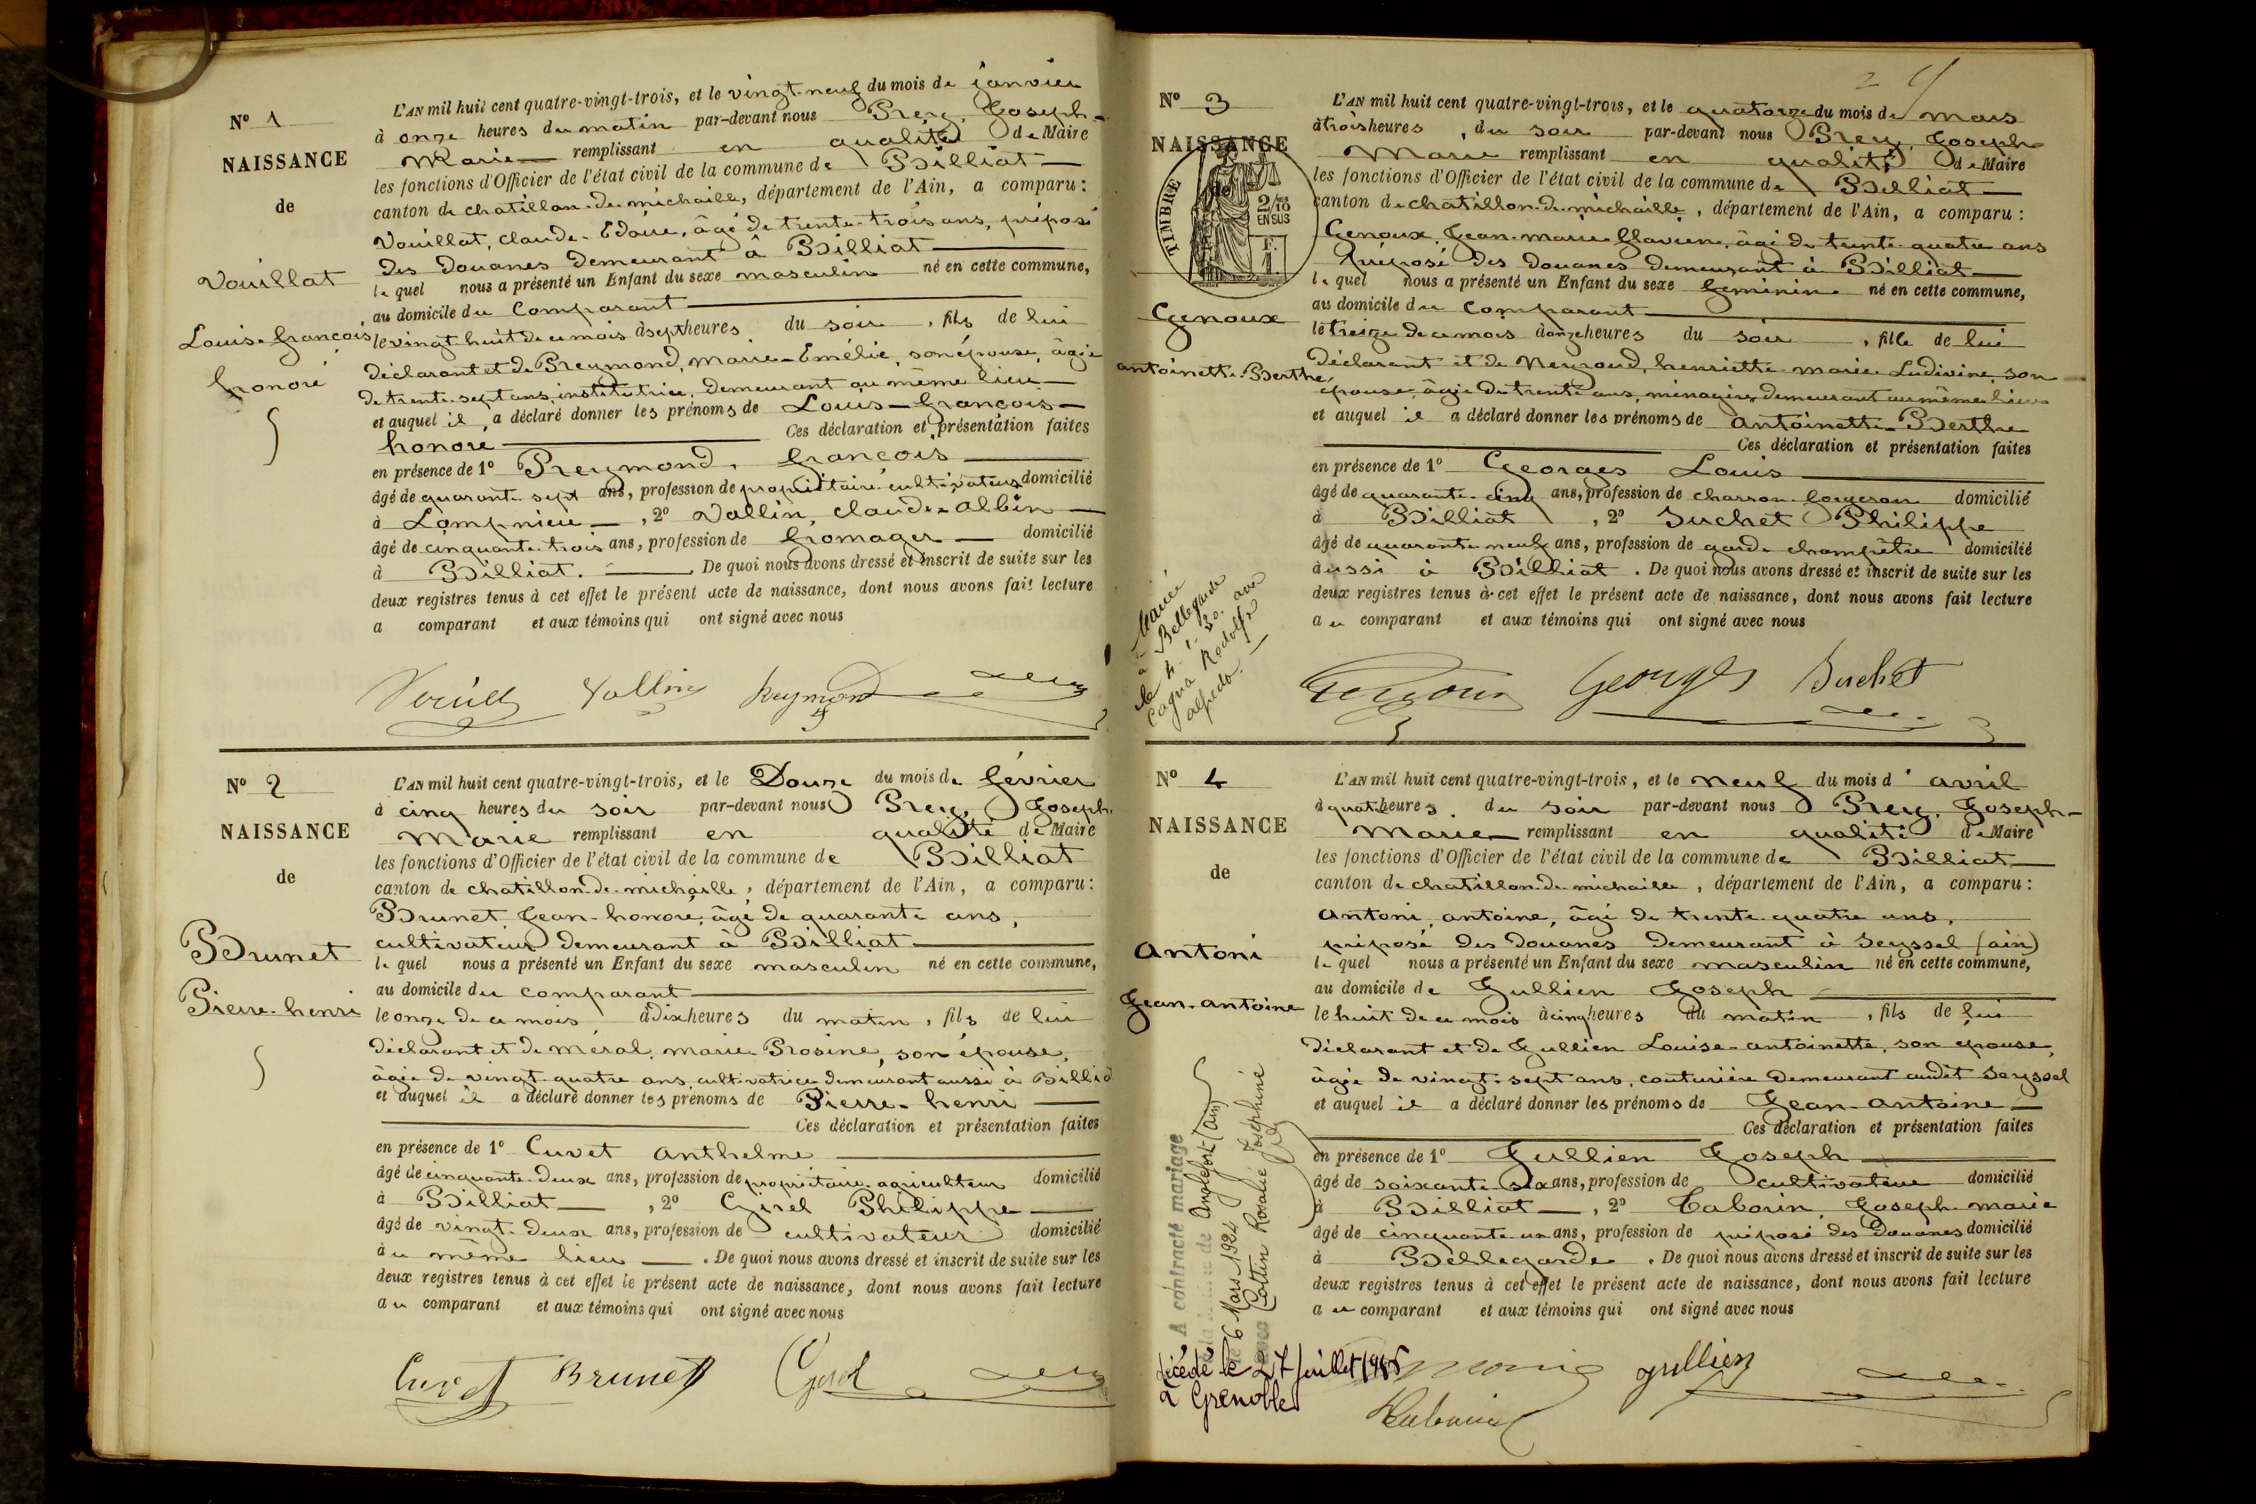 N° 1
NAISSANCE
de
Vouillat
Louis-françois
honoré
L'AN mil huit cent quatre-vingt-trois, et le vingt-neuf du mois de janvier
à onze heures du matin par-devant nous Prey, Joseph-
Marie remplissant en qualité de Maire
les fonctions d'Officier de l'état civil de la commune de Billiat
canton de chatillon-de-michaille, département de l'Ain, a comparu :
Vouillat, claude-Edoüe, âgé de trente-trois ans, préposé
des douanes demeurant à Billiat
lequel nous a présenté un Enfant du sexe masculin né en cette commune,
au domicile du Comparant
le vingt huit de ce mois à sept heures du soir, fils de lui
déclarant et de Preymond, marie-Emélie, son épouse, âgée
de trente-sept ans, institutrice, demeurant au même lieu
et auquel il a déclaré donner les prénoms de Louis-françois-
honoré Ces déclaration et présentation faites
en présence de 1° Preymond, françois
âgé de quarante-sept ans, profession de propriétaire-cultivateur domicilié
à Lompnieu, 2° Vallin, claude-albin
âgé de cinquante-trois ans, profession de fromager domicilié
à Billiat. De quoi nous avons dressé et inscrit de suite sur les
deux registres tenus à cet effet le présent acte de naissance, dont nous avons fait lecture
a comparant et aux témoins qui ont signé avec nous
Vallin Reymond
N° 2
NAISSANCE
de
Brunet
Pierre-henri
L'AN mil huit cent quatre-vingt-trois, et le Douze du mois de février
à cinq heures du soir par-devant nous Prey, Joseph
Marie remplissant en qualité de Maire
les fonctions d'Officier de l'état civil de la commune de Billiat
canton de chatillon-de-michaille, département de l'Ain, a comparu :
Brunet Jean-honoré, âgé de quarante ans,
cultivateur demeurant à Billiat
lequel nous a présenté un Enfant du sexe masculin né en cette commune,
au domicile du comparant
le onze de ce mois à dix heures du matin, fils de lui
déclarant et de méral, marie Rosine, son épouse,
âgée de vingt-quatre ans, cultivatrice demeurant aussi à Billiat
et auquel il a déclaré donner les prénoms de Pierre-henri
Ces déclaration et présentation faites
en présence de 1° Cuvet anthelme
âgé de cinquante-deux ans, profession de propriétaire agriculteur domicilié
à Billiat, 2° Girel Philippe
âgé de vingt-deux ans, profession de cultivateur domicilié
au même lieu. De quoi nous avons dressé et inscrit de suite sur les
deux registres tenus à cet effet le présent acte de naissance, dont nous avons fait lecture
au comparant et aux témoins qui ont signé avec nous
Cuvet Brunet Girel
2
N° 3
NAISSANCE
de
TIMBRE
2/10
EN SUS
F.
1.
Genoux
antoinette-Berthe
Mariée
à Bellegarde
le 4-1-20 avec
Cagna Rodolfo
alfredo.
L'AN mil huit cent quatre-vingt-trois, et le quatorze du mois de mars
à trois heures du soir par-devant nous Prey, Joseph
Marie remplissant en qualité de Maire
les fonctions d'Officier de l'état civil de la commune de Billiat
canton de chatillon-de-michaille, département de l'Ain, a comparu :
Genoux, Jean-marie-flavien, âgé de trente-quatre ans
Préposé des douanes demeurant à Billiat
lequel nous a présenté un Enfant du sexe féminin né en cette commune,
au domicile du Comparant
le treize de ce mois à onze heures du soir, fille de lui
déclarant et de Neyroud, henriette-marie-Ludivine, son
épouse, âgée de trente ans, ménagère, demeurant au même lieu
et auquel il a déclaré donner les prénoms de antoinette-Berthe
Ces déclaration et présentation faites
en présence de 1° Georges Louis
âgé de quarante-cinq ans, profession de charron-forgeron domicilié
à Billiat, 2° Suchet Philippe
âgé de quarante-neuf ans, profession de garde-champêtre domicilié
aussi à Billiat. De quoi nous avons dressé et inscrit de suite sur les
deux registres tenus à cet effet le présent acte de naissance, dont nous avons fait lecture
au comparant et aux témoins qui ont signé avec nous
Genoux Georges Suchet
N° 4
NAISSANCE
de
Antoni
Jean-antoine
A contracté mariage
à la mairie de Anglefort (Ain)
le 6 Mars 1924
avec Cottin Rosalie Joséphine
décédé le 27 juillet
à Grenoble
L'AN mil huit cent quatre-vingt-trois, et le neuf du mois d'avril
à quatre heures du soir par-devant nous Prey, Joseph-
Marie remplissant en qualité de Maire
les fonctions d'Officier de l'état civil de la commune de Billiat
canton de chatillon-de-michaille, département de l'Ain, a comparu :
Antoni, antoine, âgé de trente-quatre ans,
préposé des douanes demeurant à Seyssel (ain)
lequel nous a présenté un Enfant du sexe masculin né en cette commune,
au domicile de Jullien Joseph
le huit de ce mois à cinq heures du matin, fils de lui
déclarant et de Jullien Louise-antoinette, son épouse,
âgée de vingt-sept ans, couturière demeurant audit Seyssel
et auquel il a déclaré donner les prénoms de Jean-Antoine
Ces déclaration et présentation faites
en présence de 1° Jullien Joseph
âgé de soixante-six ans, profession de cultivateur domicilié
à Billiat, 2° Taborin, Joseph-marie
âgé de cinquante-un ans, profession de préposé des Douanes domicilié
à Bellegarde. De quoi nous avons dressé et inscrit de suite sur les
deux registres tenus à cet effet le présent acte de naissance, dont nous avons fait lecture
au comparant et aux témoins qui ont signé avec nous
Jullien